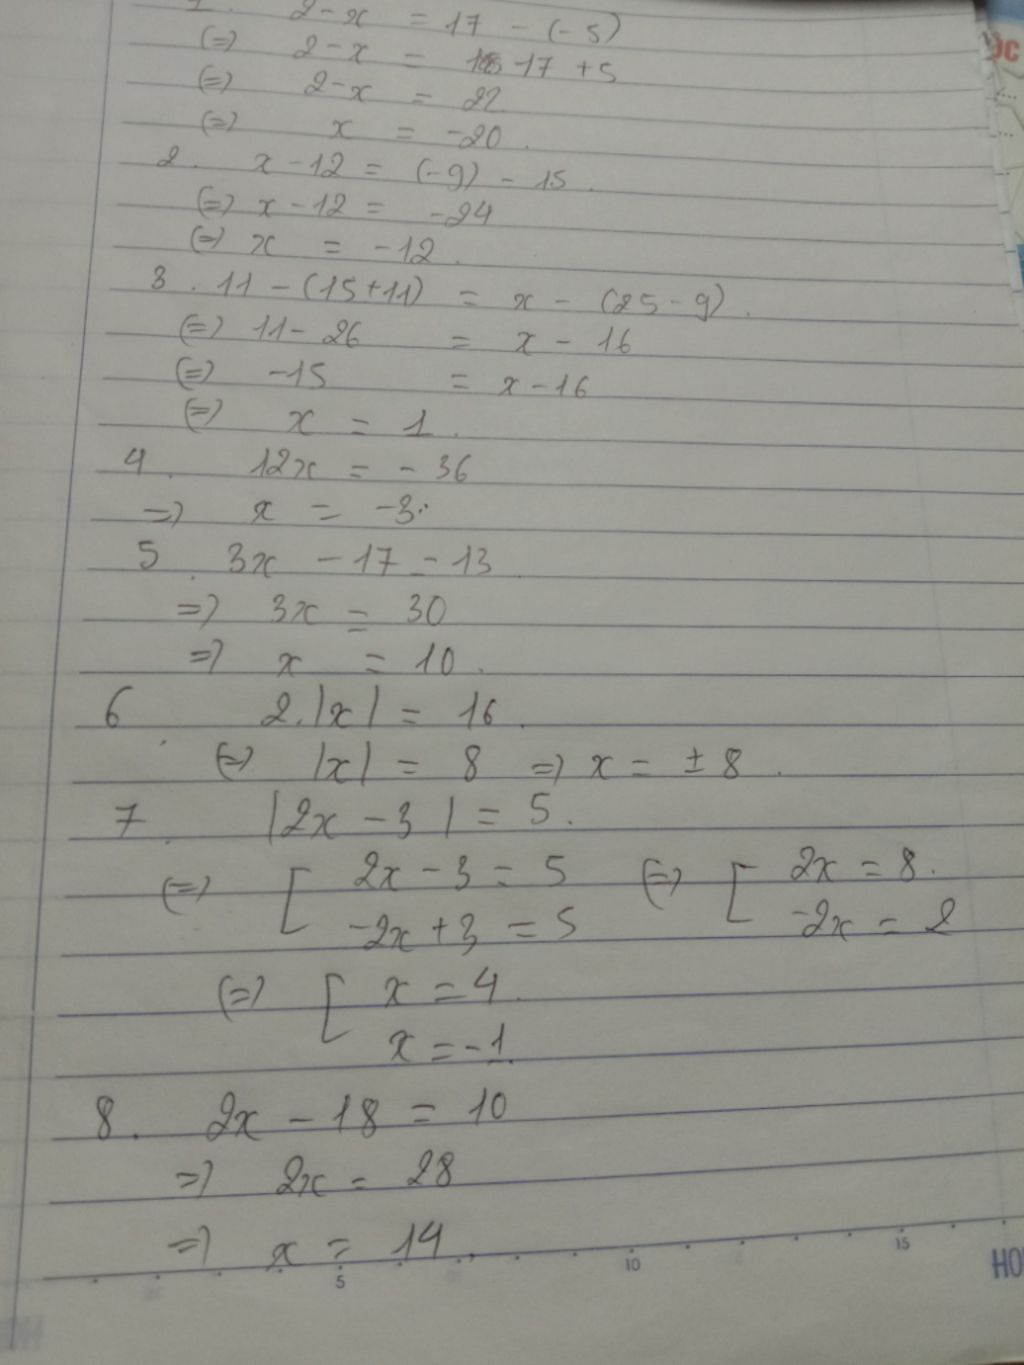 1. 2-x = 17 - (-5)
(=) 2-x = 17 + 5
(=) 2-x = 22
(=) x = -20.
2. x-12 = (-9) - 15.
(=) x-12 = -24
(=) x = -12.
3. 11-(15+11) = x - (25-9).
(=) 11-26 = x - 16
(=) -15 = x-16
(=) x = 1.
4. 12x = -36
=) x = -3.
5. 3x - 17 = 13
=) 3x = 30
=) x = 10.
6. 2.|x| = 16.
(=) |x| = 8 =) x = ± 8.
7. |2x - 3| = 5.
(=) [ 2x - 3 = 5 (=) [ 2x = 8.
-2x + 3 = 5 -2x = 2
(=) [ x = 4.
x = -1.
8. 2x - 18 = 10
=) 2x = 28
=) x = 14.
5 10 15
HO